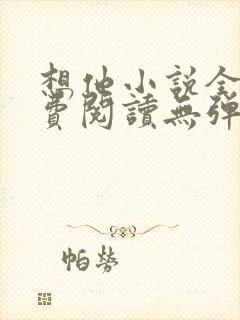 想他小說全
費閱讀無彈
帕勞